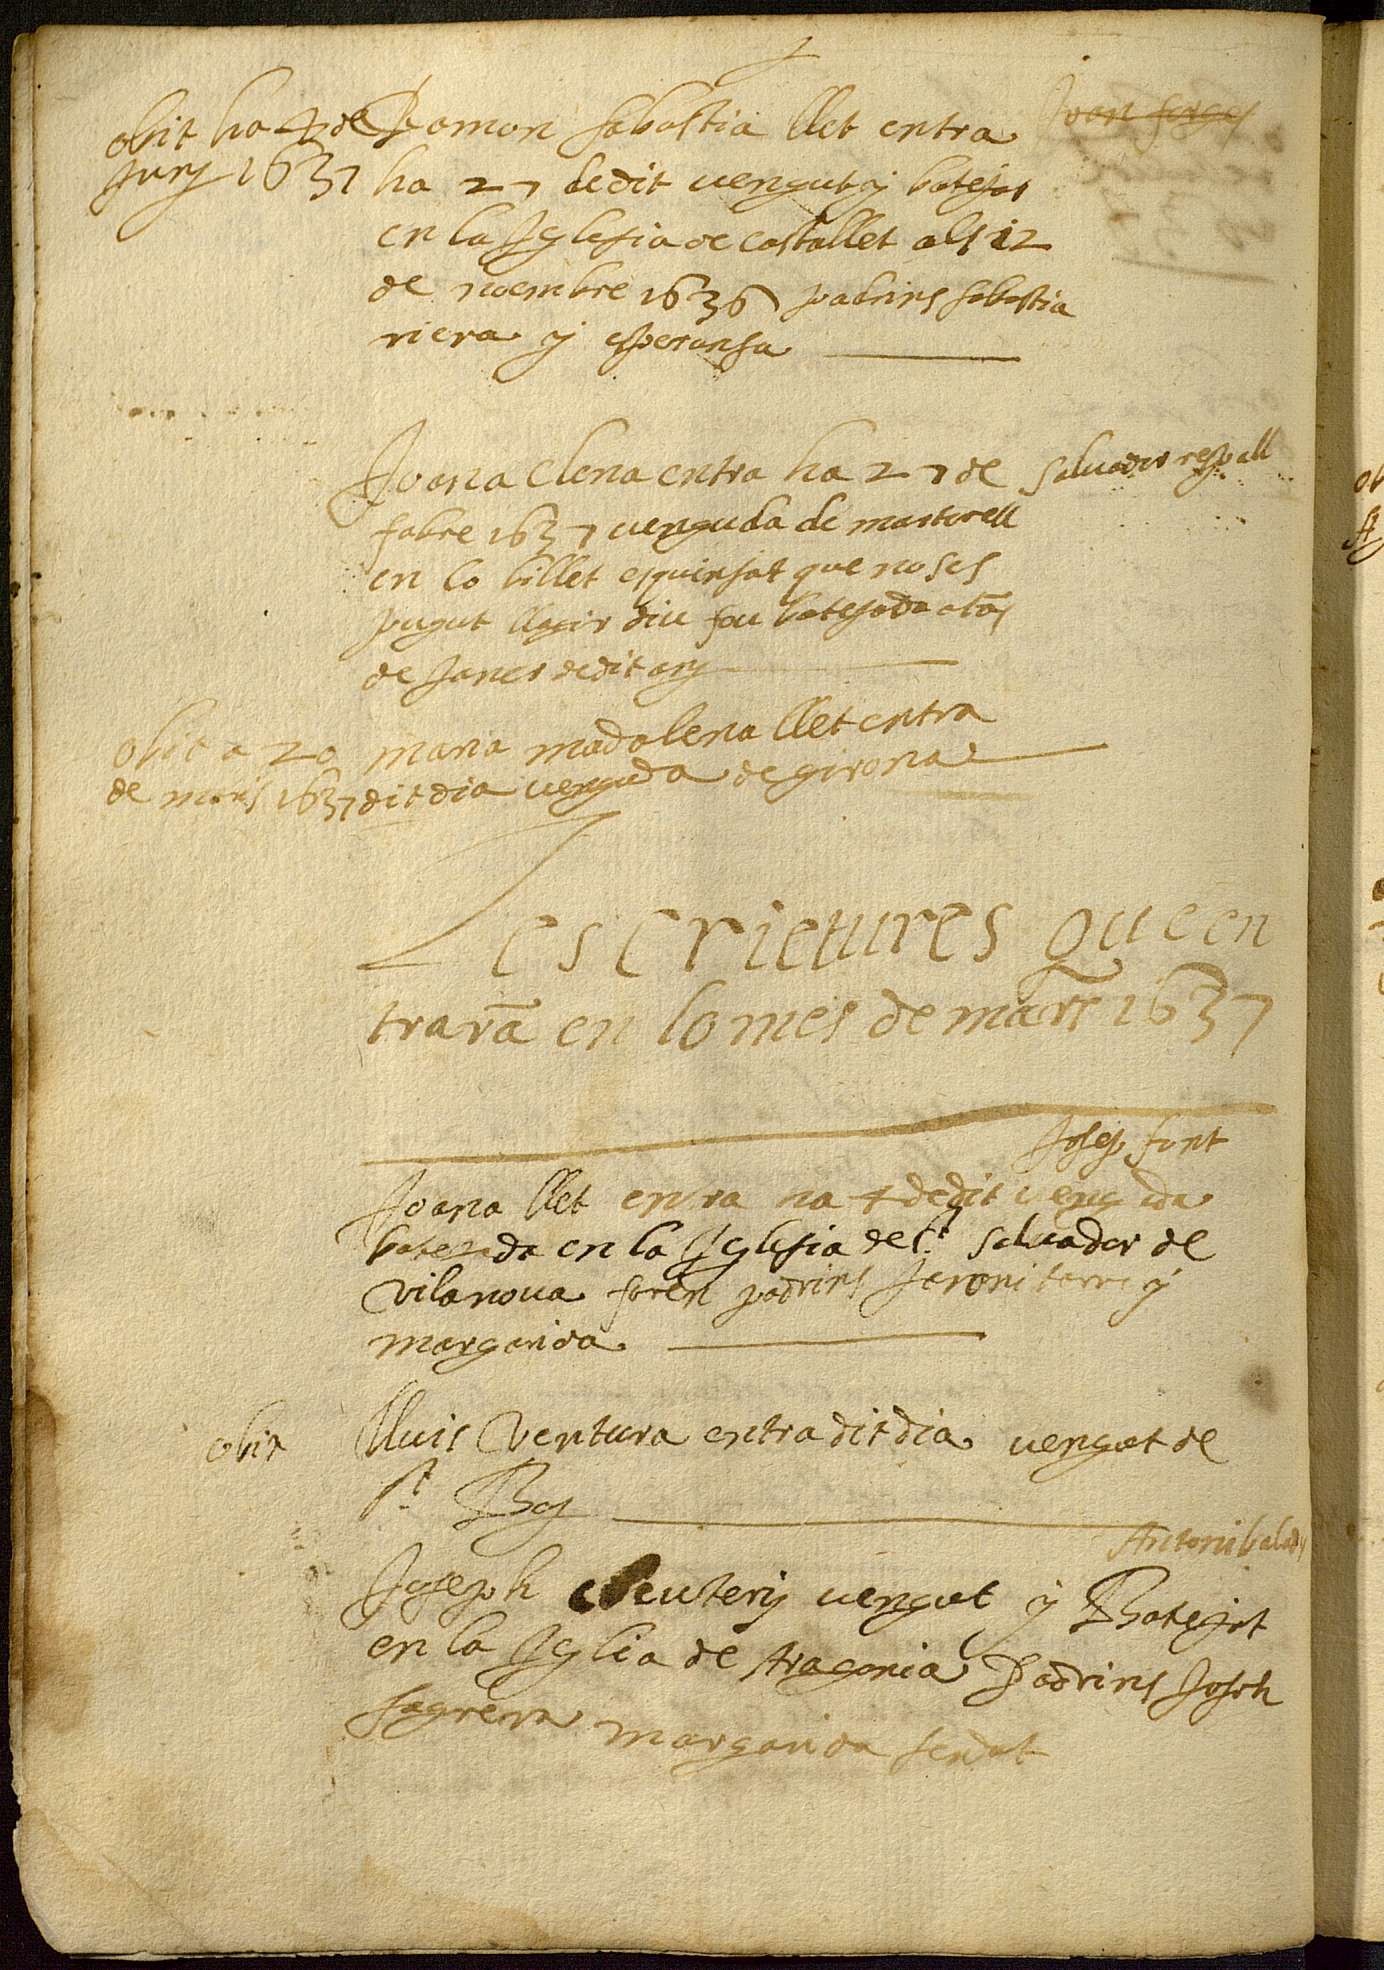 obit ha 4 de
Juny 1637
Ramon sabastia llet entra
ha 27 dedit vengut y batejat
en la Iglesia de castallet als 12
de noembre 1636 padrins sabastia
riera y esperansa
Joan
Joana Elena entra ha 27 de
fabre 1637 venguda de martorell
en lo billet esquinsat que no ses
pugut llegir diu fou batejada
de Janer de dit any
salvador respall
obit a 20
de mars 1637
maria madalena llet entra
dit dia venguda de girona
Les crietures que en
trarā en lo mes de mars 1637
Josep font
Joana llet entra ha 4 dedit venguda
batejada en la Iglesia de st salvador de
vilanova foren padrins Jeroni torre y
margarida
obit
lluis ventura entra dit dia vengut de
st Boy
Antoni
Joseph eleutery vengut y Batejat
en la Iglia de Aragonia Padrins Joseph
sagrera margarida